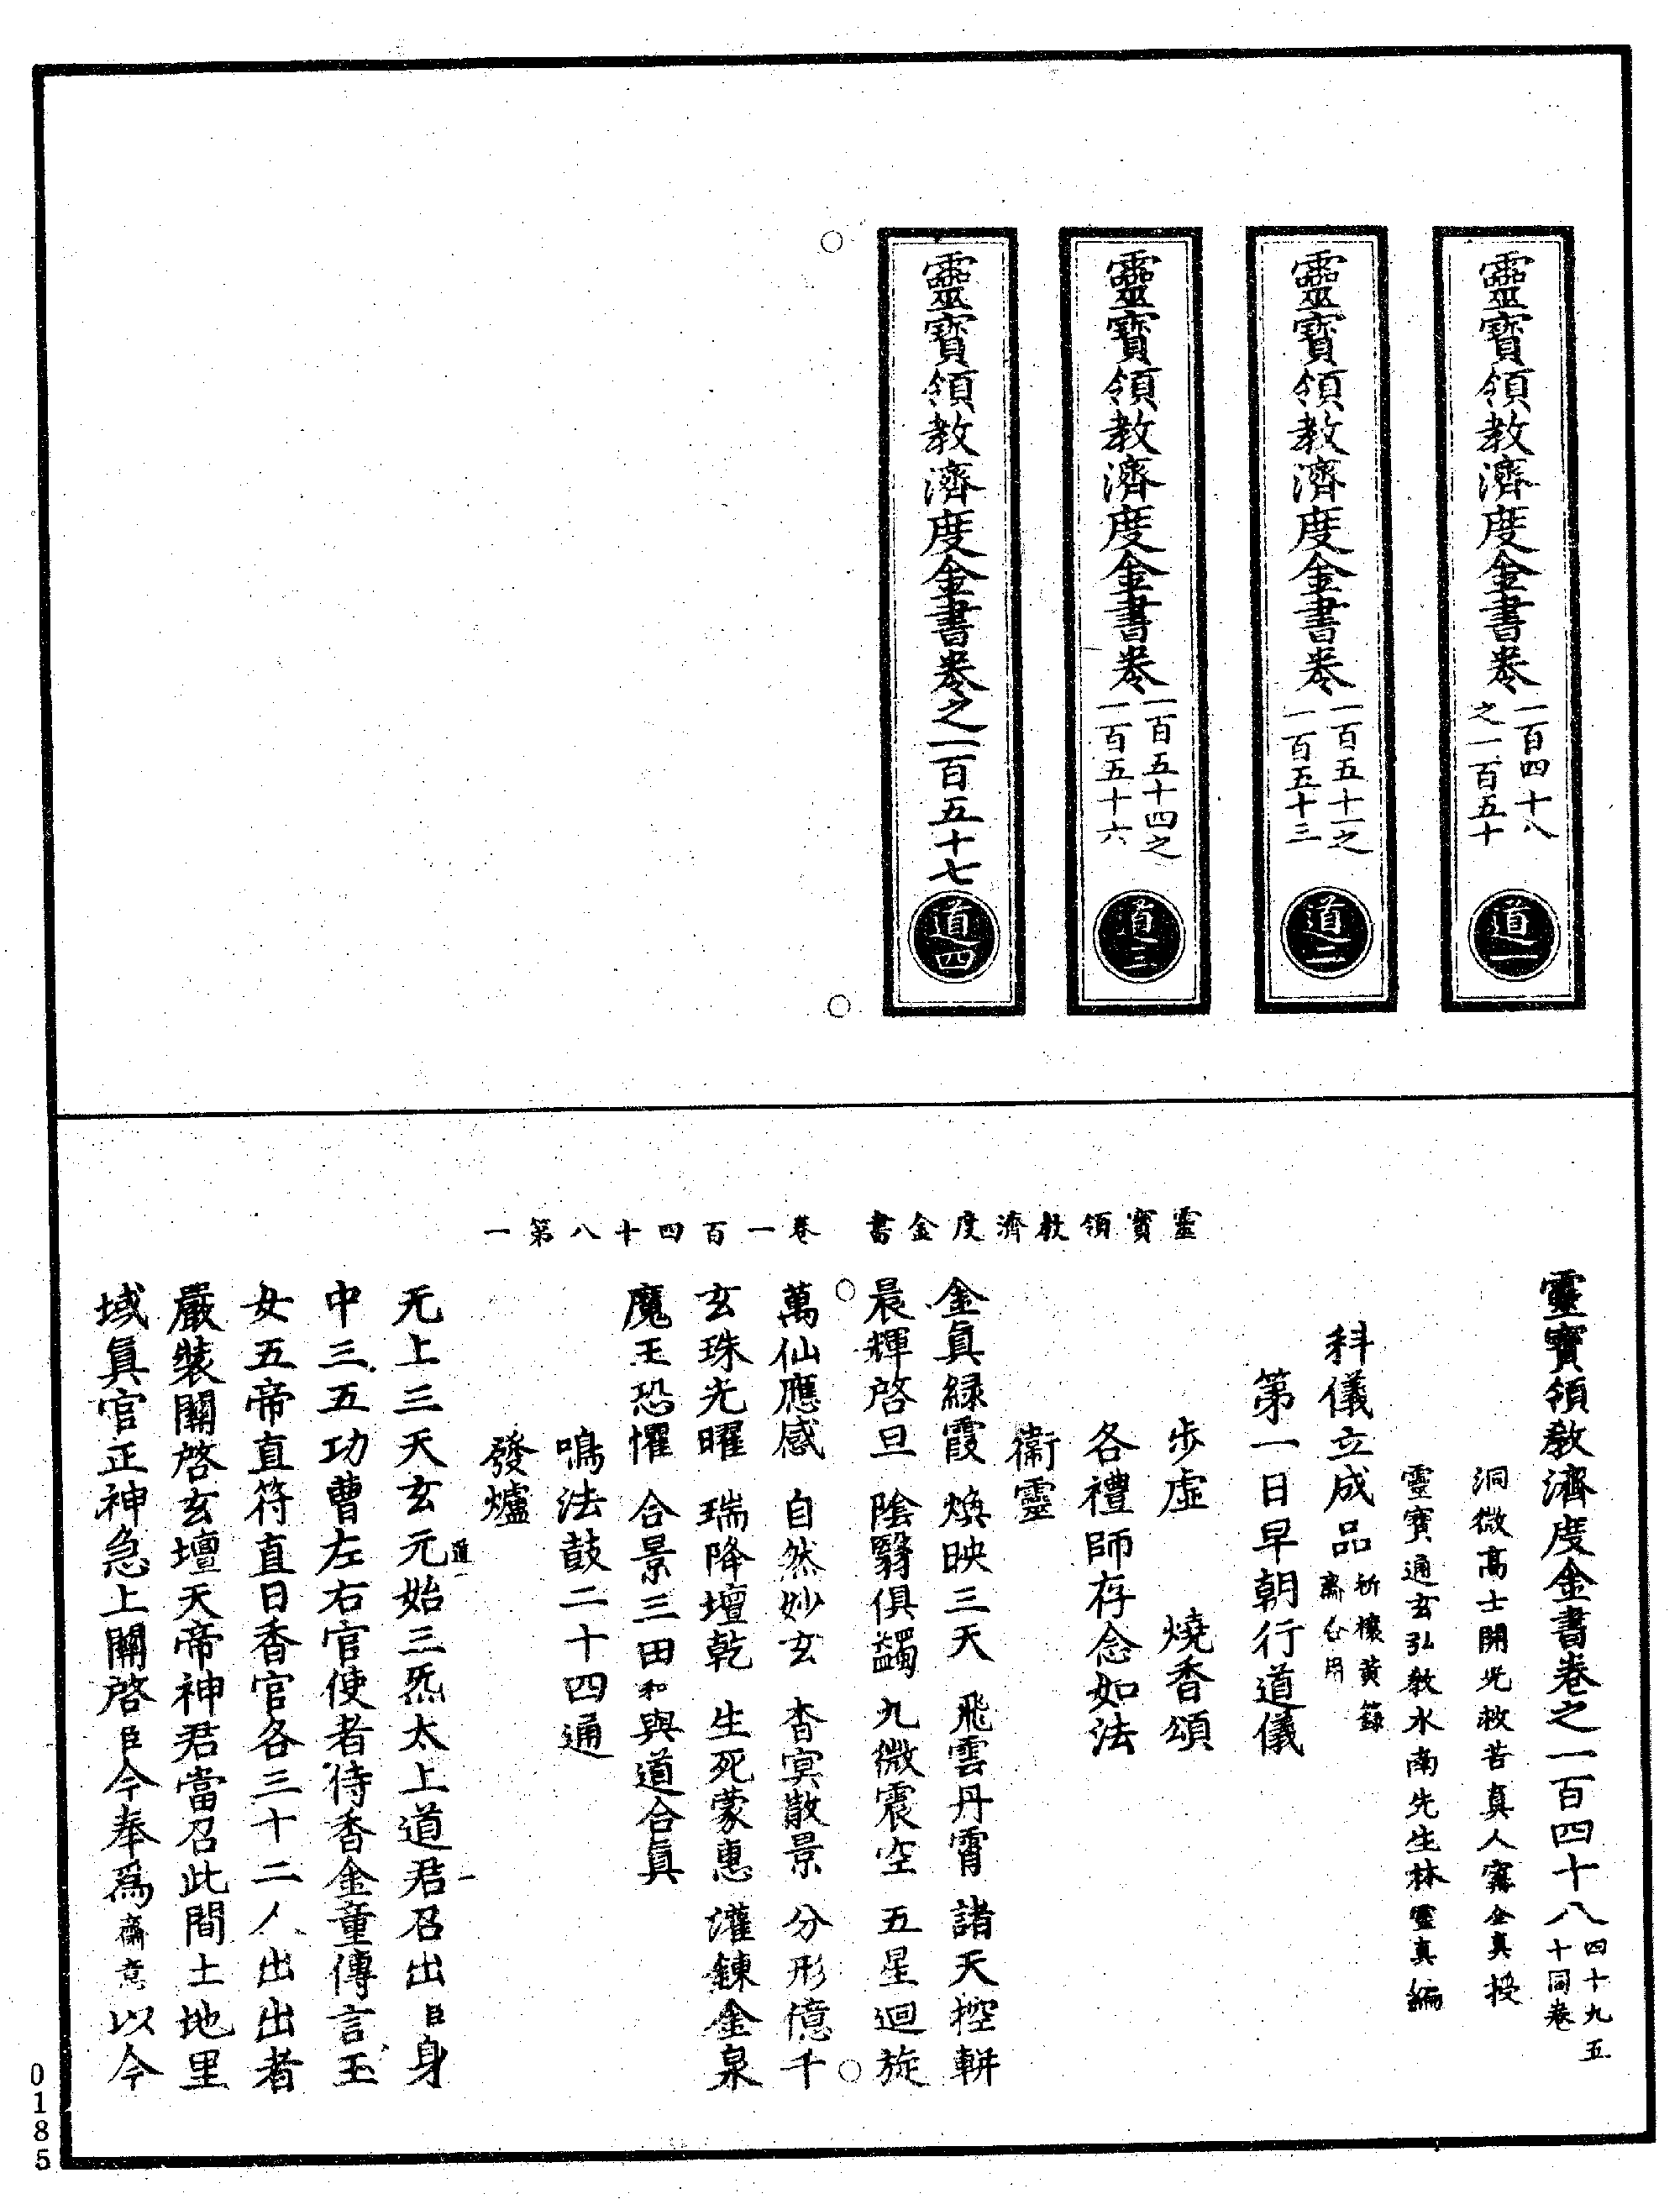 靈寶領教濟度金書卷一百四十八之一百五十
道一
靈寶領教濟度金書卷一百五十一之一百五十三
道二
靈寶領教濟度金書卷一百五十四之一百五十六
道三
靈寶領教濟度金書卷之一百五十七
道四
靈寶領教濟度金書 卷一百四十八第一
靈寶領教濟度金書卷之一百四十八 四十九五十同卷
洞微高士開光救苦真人甯全真授
靈寶通玄弘教水南先生林靈真編
科儀立成品 祈禳黃籙齋仝用
第一日早朝行道儀
步虛 燒香頌
各禮師存念如法
衛靈
金真緑霞 煥映三天 飛雲丹霄 諸天控軿
晨輝啓旦 陰翳俱蠲 九微震空 五星迴旋
萬仙應感 自然妙玄 杳冥散景 分形億千
玄珠光曜 瑞降壇乾 生死蒙惠 灌鍊金泉
魔王恐懼 合景三田 和與道合真
鳴法鼓二十四通
發爐
无上三天玄元始三炁太上道君召出臣身
道一 一
中三五功曹左右官使者侍香金童傳言玉
女五帝直符直日香官各三十二人出出者
嚴裝關啓玄壇天帝神君當召此間土地里
域真官正神急上關啓臣今奉爲齋意以今
0185